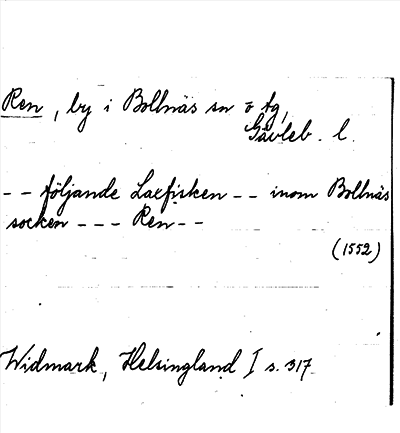 Ren, by i Bollnäs sn o fg,
Gävleb. l.
-- följande Laxfisken -- inom Bollnäs
socken --- Ren --
(1552)
Widmark, Helsingland I s. 317